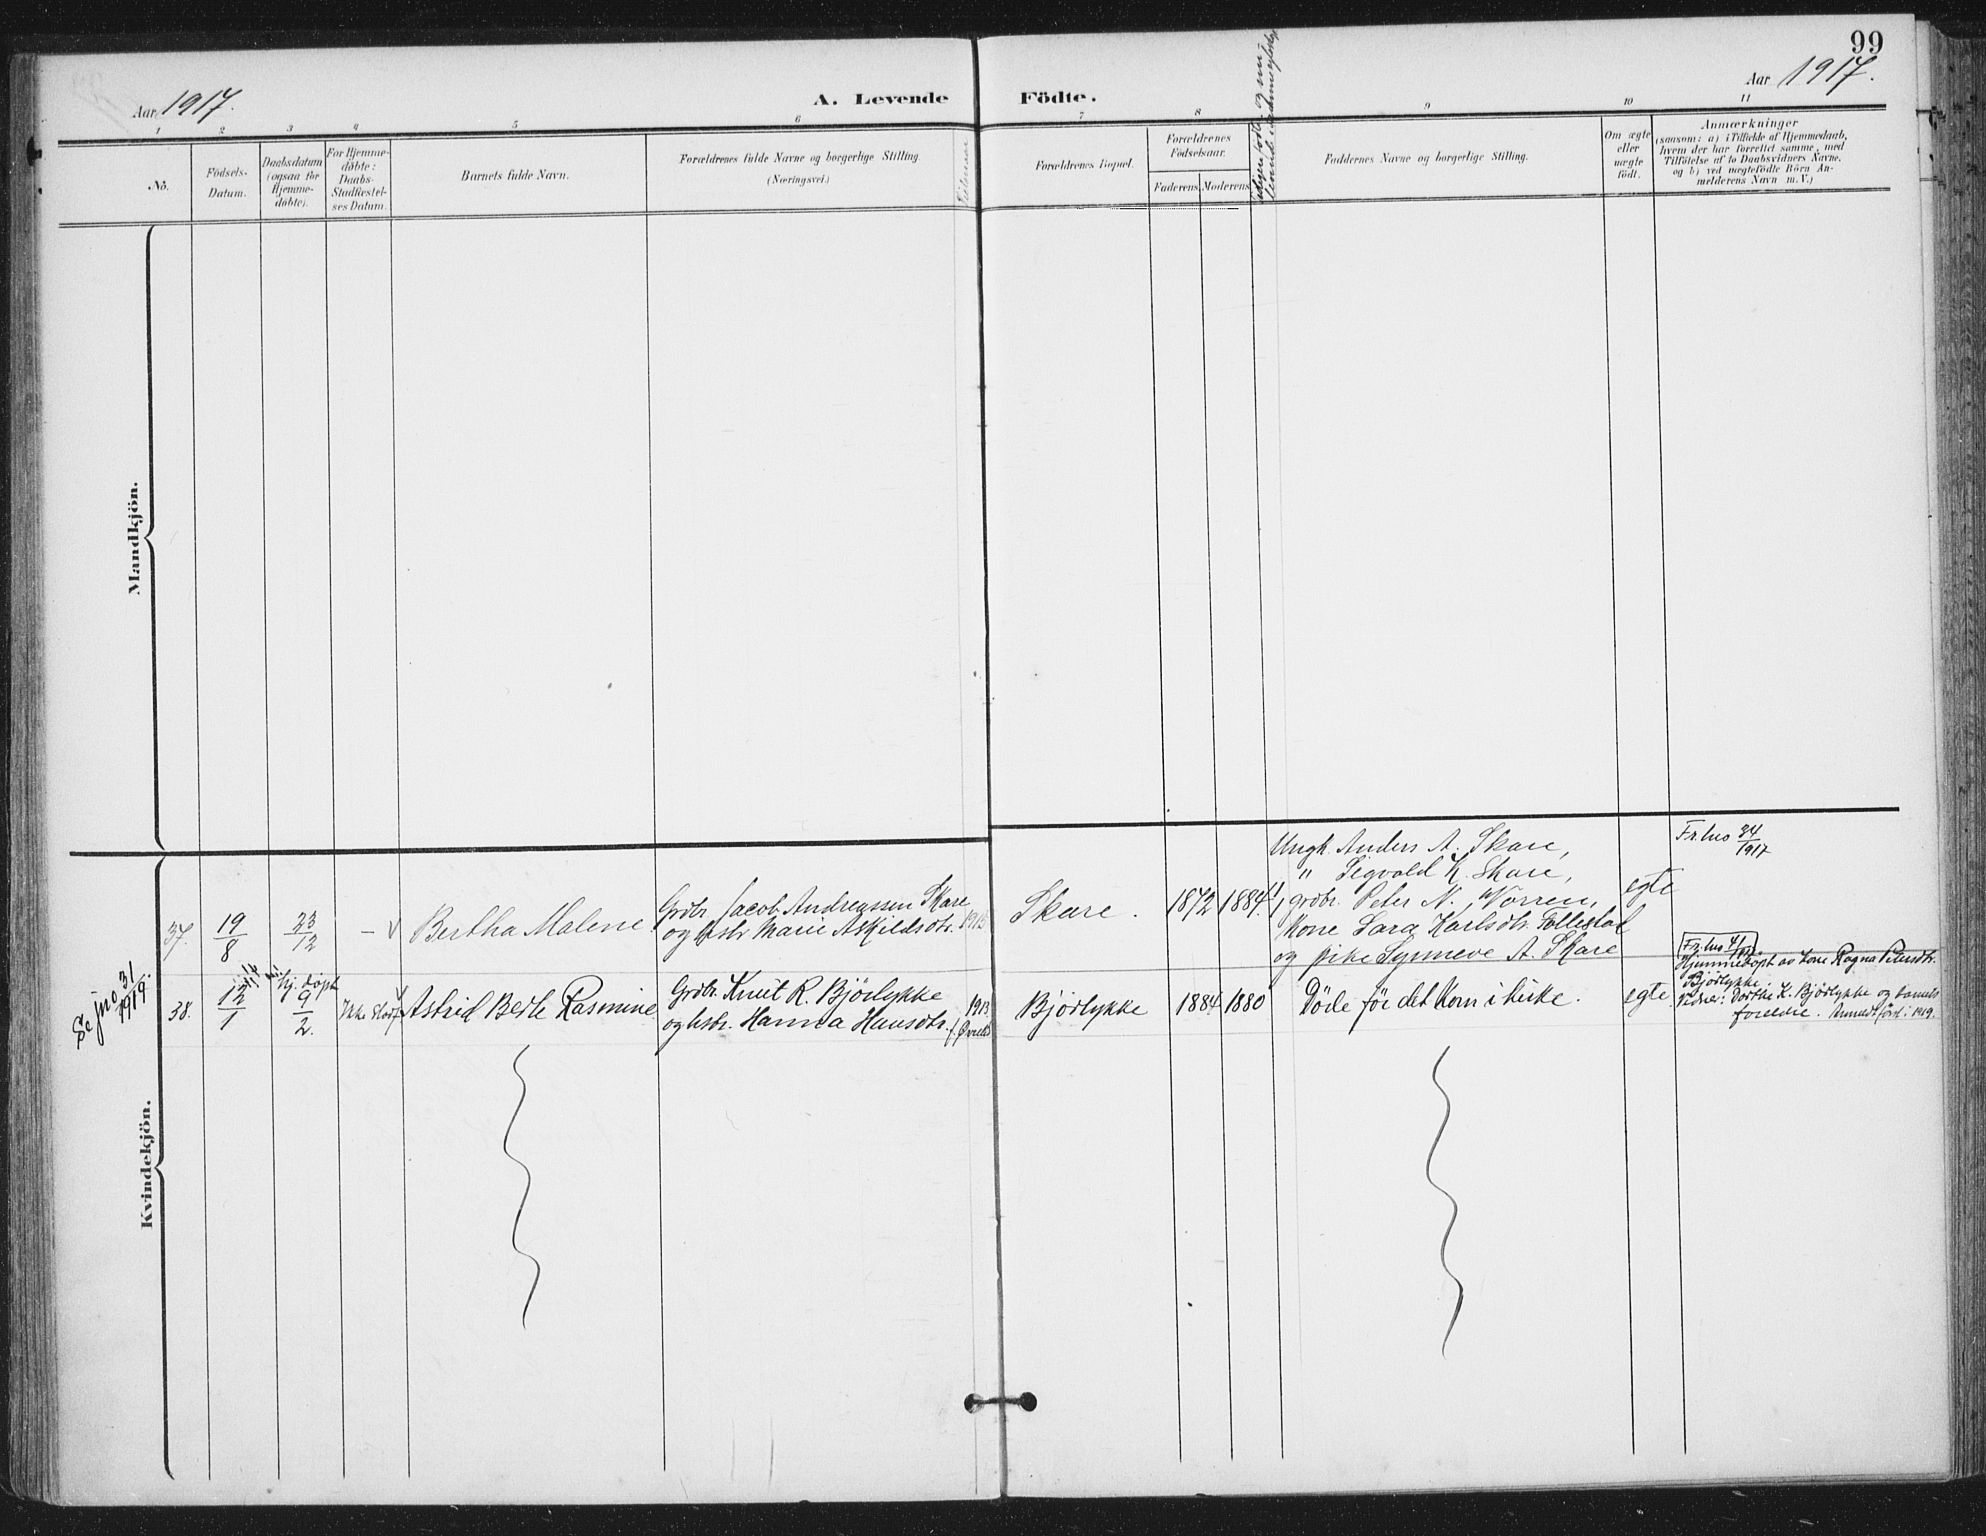 99
Aar 1917.
A. Levende Födte.
Aar 1917.
1 2 3 4 5 6 7 8 9 10 11
No.
Födsels-
Datum.
Daabsdatum
(ogsaa for
Hjemme-
döbte).
For Hjemme-
döbte:
Daabs-
Stadfæstel-
ses Datum.
Barnets fulde Navn.
Forældrenes fulde Navne og borgerlige Stilling.
(Næringsvei.)
Forældrenes Bopæl.
Forældrenes
Födselsaar.
Faderens Moderens
Faddernes Navne og borgerlige Stilling.
Om ægte
eller
uægte
födt.
Anmærkninger
(saasom: a) i Tilfælde af Hjemmedaab,
hvem der har forrettet samme, med
Tilföielse af to Daabsvidners Navne.
og b) ved uægtefödte Börn An-
melderens Navn m. V.)
Mandkjön.
Kvindekjön.
37.
19/8
23/12
-
Bertha Malene
Grdbr. Jacob Andreassen Skare
og hstr. Marie Askildsdtr.
Skare.
1872 1884
Ungk. Anders A. Skare,
" Sigvald K. Skare,
grdbr. Peter N. Worren,
Kone Sara Karlsdtr. Follestad
og pike Synneve A. Skare
egte
34/1917
Se jno 31/1919.
38.
12/1
hj. döpt
9/2.
Astrid Berle Rasmine
Grdbr. Knut R. Björlykke
og hstr. Hanna Hansdtr.
1913
Björlykke
1884 1880
Döde för det kom i kirke.
egte
Hjemmedöpt av kone Ragna Petersdtr.
Björlykke
Vidner: Dorthe K. Björlykke og barnets
foreldre. Anmeldt först i 1919.